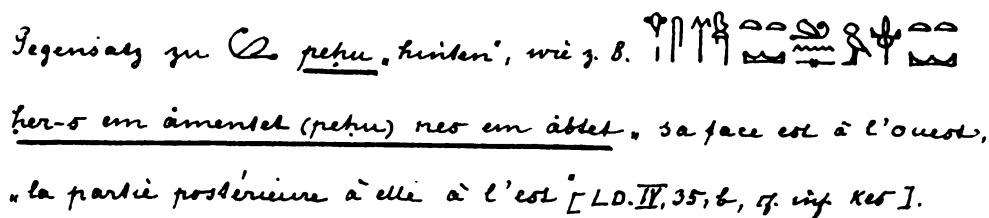 Gegensatz zu peḥu „hinten“, wie z. B.
ḥer-s em âmentet (peḥu) nes em âbtet „sa face est à l'ouest,
„la partie postérieure à elle à l'est“ [LD. IV, 35, b, cf. inf. Kes].